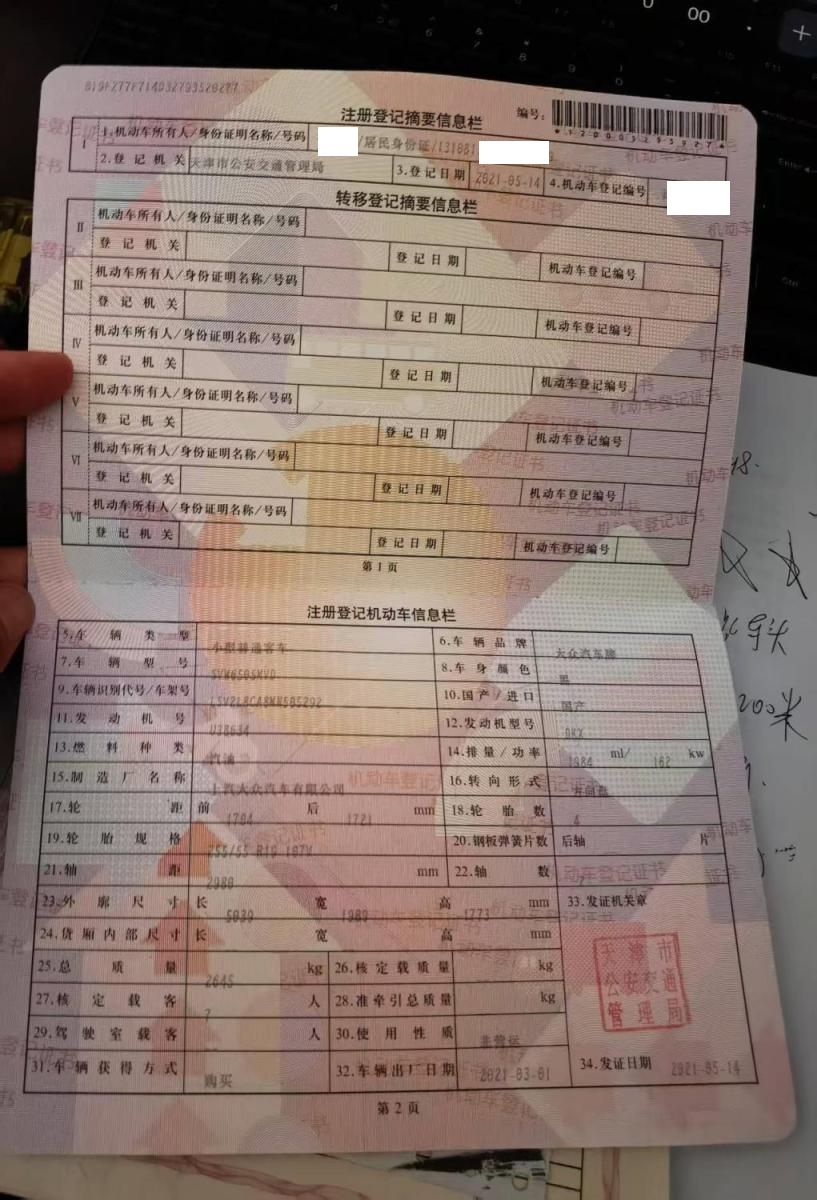 注册登记摘要信息栏
编号：
I
1.机动车所有人/身份证明名称/号码 /居民身份证/131081
2.登记机关 天津市公安交通管理局 3.登记日期 2021-05-14 4.机动车登记编号
转移登记摘要信息栏
II 机动车所有人/身份证明名称/号码
登记机关 登记日期 机动车登记编号
III 机动车所有人/身份证明名称/号码
登记机关 登记日期 机动车登记编号
IV 机动车所有人/身份证明名称/号码
登记机关 登记日期 机动车登记编号
V 机动车所有人/身份证明名称/号码
登记机关 登记日期 机动车登记编号
VI 机动车所有人/身份证明名称/号码
登记机关 登记日期 机动车登记编号
VII 机动车所有人/身份证明名称/号码
登记机关 登记日期 机动车登记编号
第1页
注册登记机动车信息栏
5.车辆类型 小型普通客车 6.车辆品牌 大众汽车牌
7.车辆型号 8.车身颜色 黑
9.车辆识别代号/车架号 10.国产/进口 国产
11.发动机号 U38634 12.发动机型号 DKX
13.燃料种类 汽油 14.排量/功率 1984 ml/ 162 kw
15.制造厂名称 上汽大众汽车有限公司 16.转向形式 方向盘
17.轮距 前 1704 后 1721 mm 18.轮胎数 4
19.轮胎规格 255/55 R19 107V 20.钢板弹簧片数 后轴 片
21.轴距 2980 mm 22.轴数 2
23.外廓尺寸 长 5039 宽 1989 高 1773 mm 33.发证机关章
24.货厢内部尺寸 长 宽 高 mm
25.总质量 2645 kg 26.核定载质量 kg
天津市
公安交通
管理局
27.核定载客 7 人 28.准牵引总质量 kg
29.驾驶室载客 人 30.使用性质 非营运
31.车辆获得方式 购买 32.车辆出厂日期 2021-03-01 34.发证日期 2021-05-14
第2页
200米